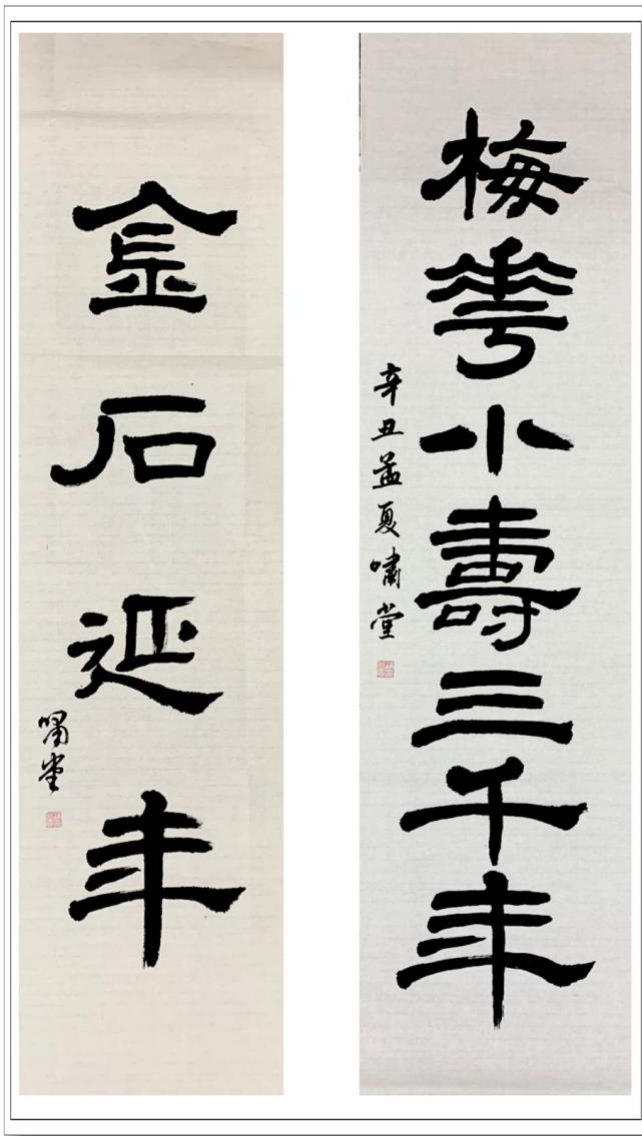 梅華小壽三千年
辛丑孟夏嘯堂
金石延年
嘯堂